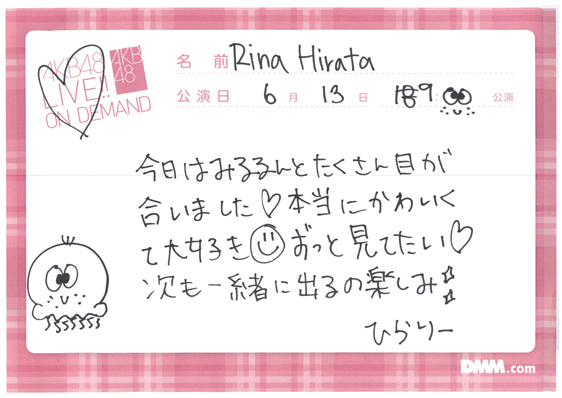 AKB48
LIVE!!
ON DEMAND
AKB
48
名 前 Rina Hirata
公演日 6 月 13 日 公演
今日はみるるんとたくさん目が
合いました♡本当にかわいく
て大好き ずっと見てたい♡
次も一緒に出るの楽しみ
ひらりー
DMM.com